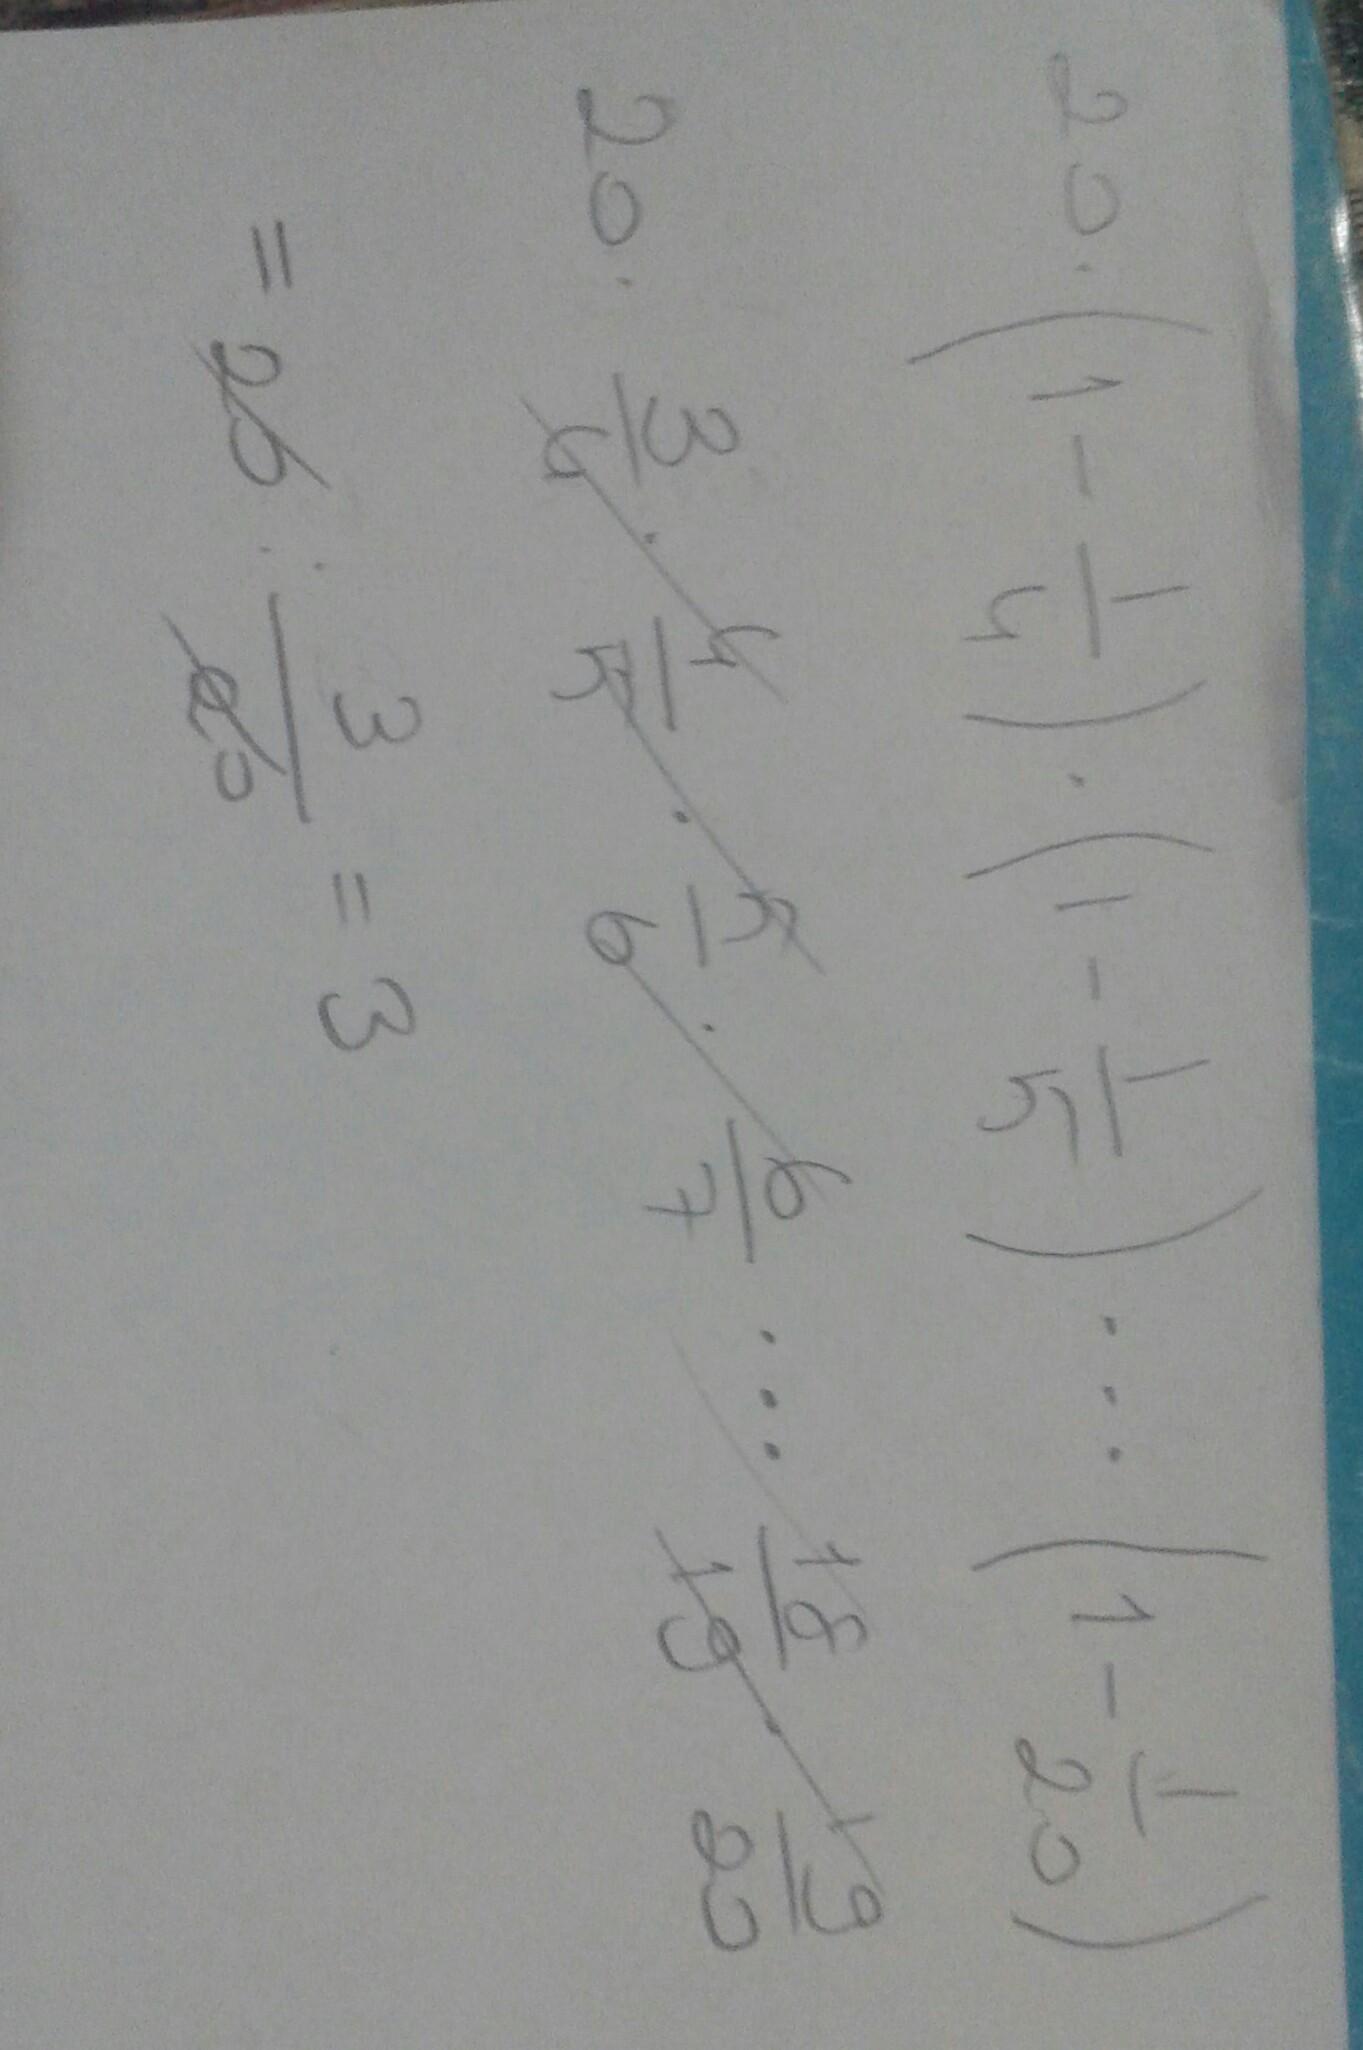 20 · (1 - 1/4) · (1 - 1/5) ... (1 - 1/20)
20 · 3/4 · 4/5 · 5/6 · 6/7 ... 18/19 · 19/20
= 20 · 3/20 = 3